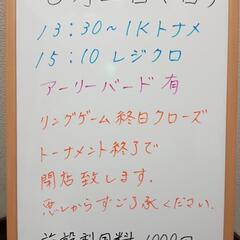 13:30～1Kトナメ
15:10 レジクロ
アーリーバード 有
リングゲーム終日クローズ
トーナメント終了で
閉店致します.
悪しからずご了承ください.